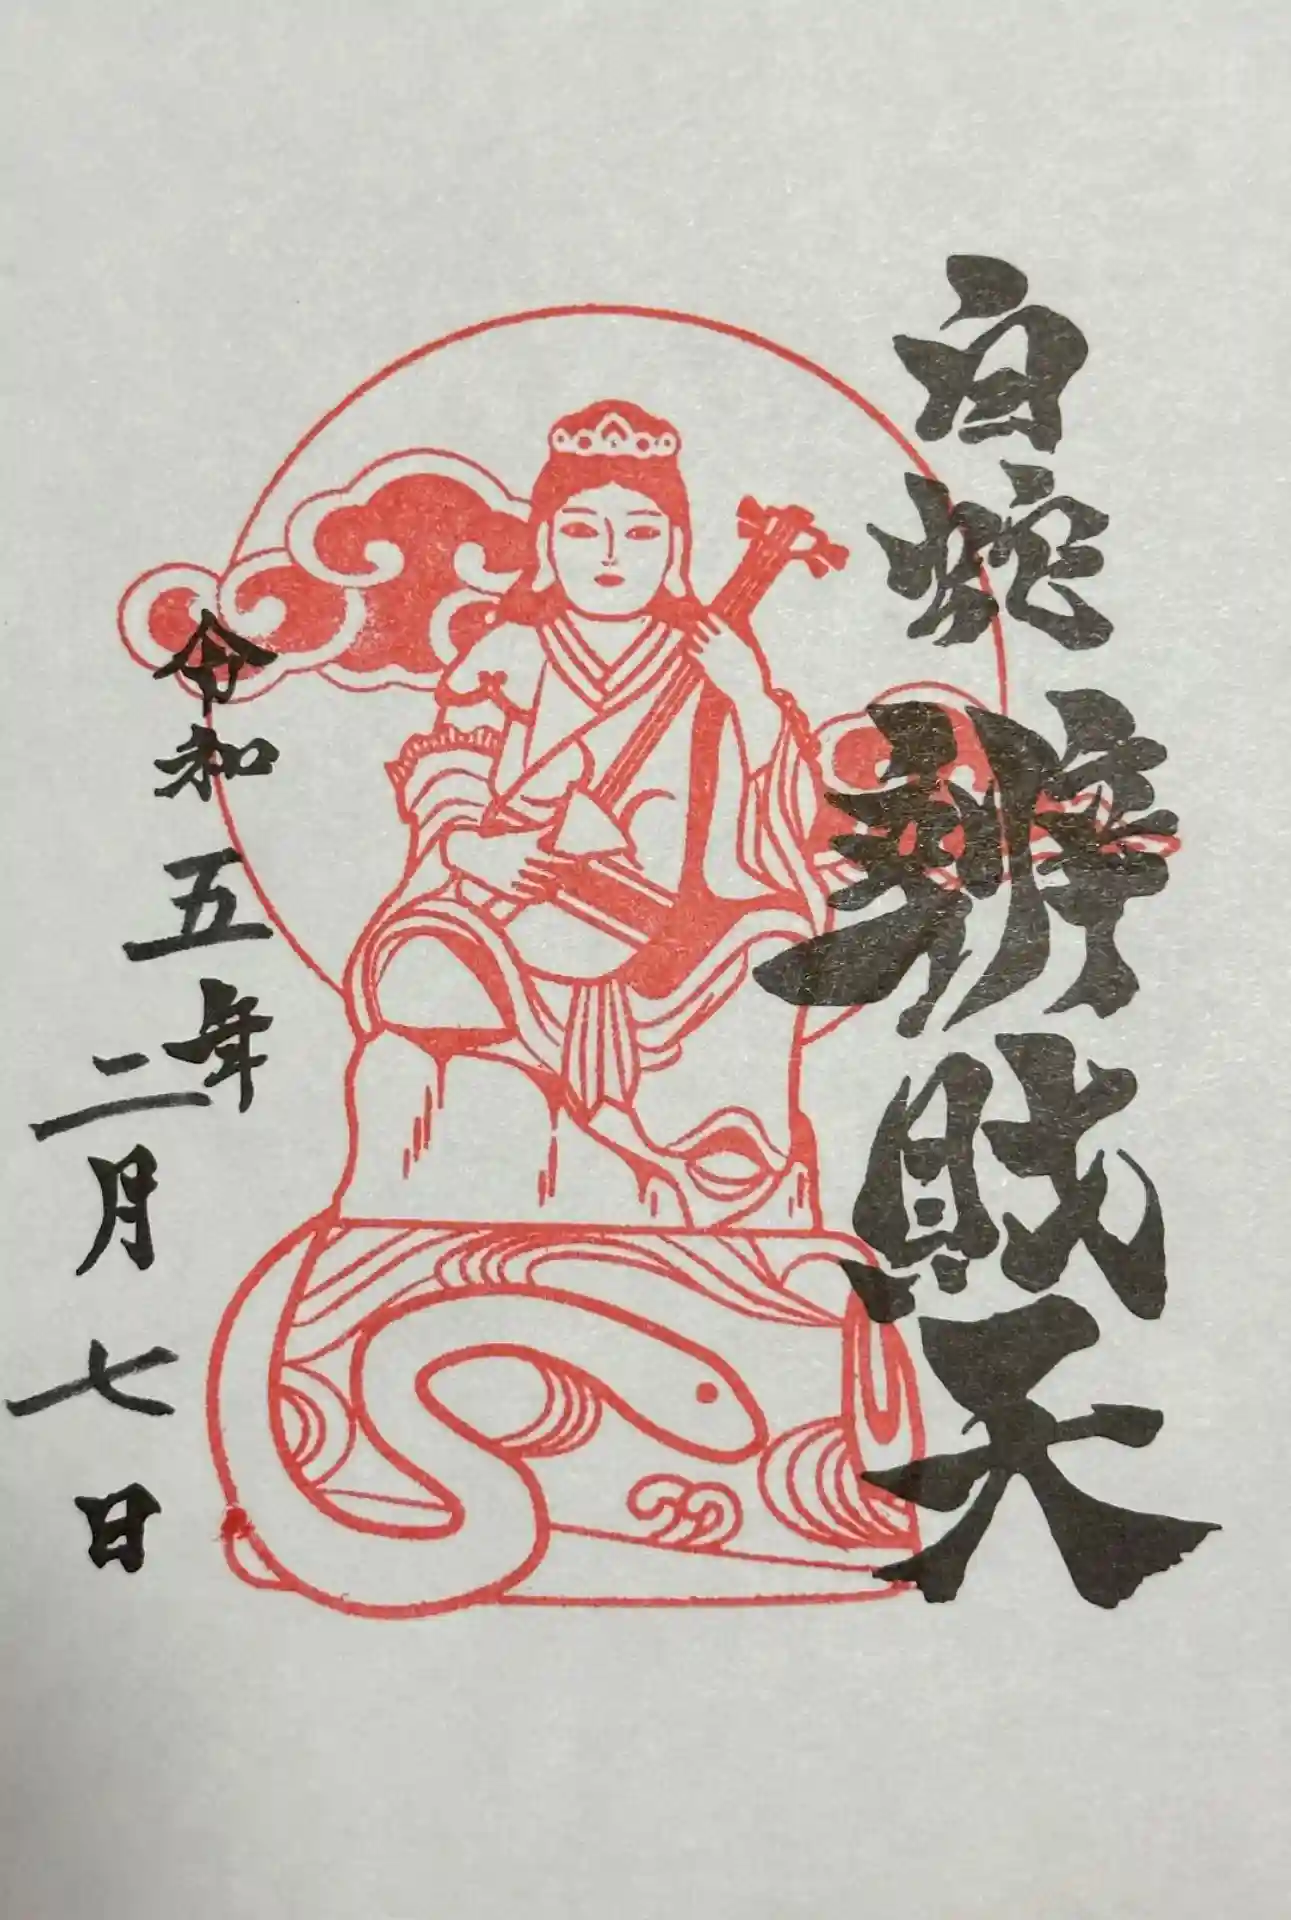 白蛇辨財天
令和五年二月七日